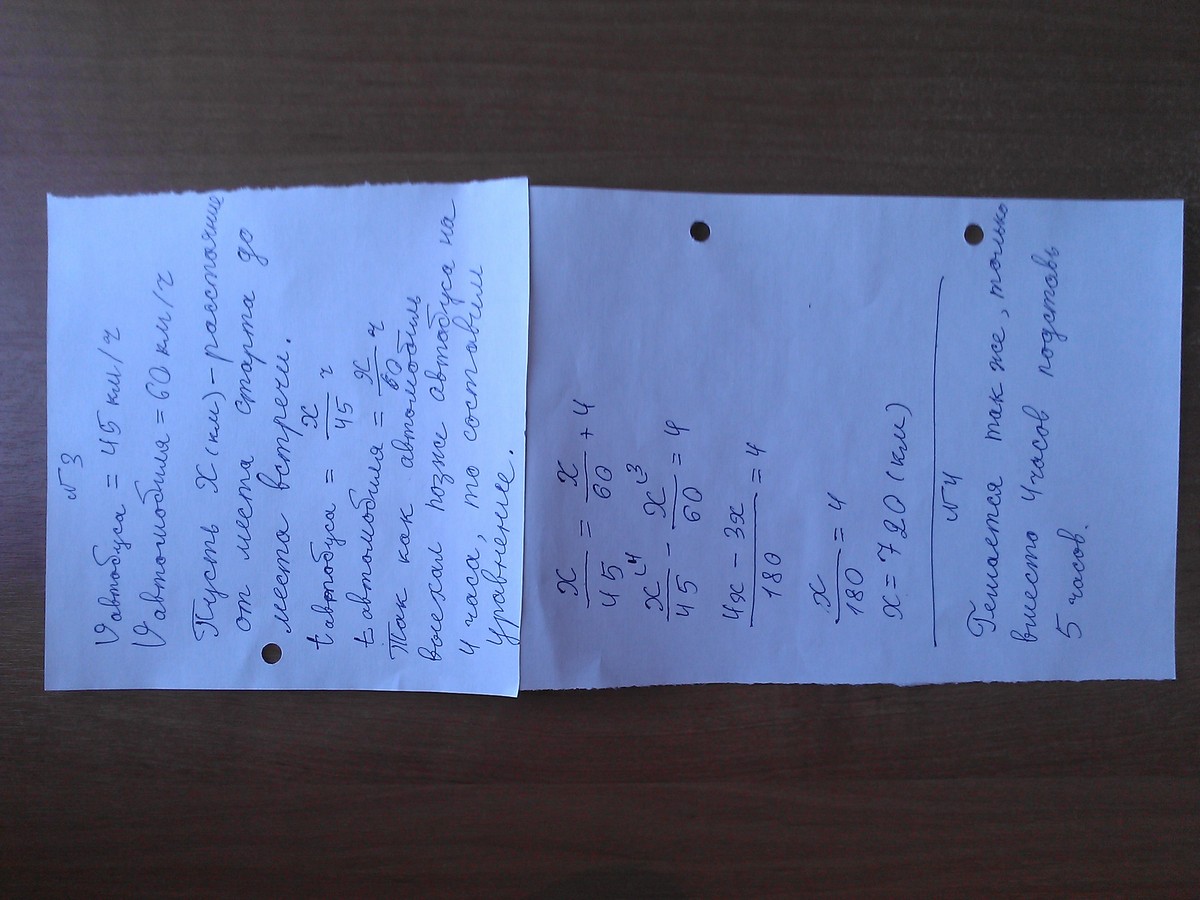 №3
Vавтобуса = 45 км/ч
Vавтомобиля = 60 км/ч
Пусть X (км) – расстояние
от места старта до
места встречи.
t автобуса = x/45 ч
t автомобиля = x/60 ч
Так как автомобиль
выехал позже автобуса на
4 часа, то составим
уравнение.
x/45 = x/60 + 4
x^4/45 - x^3/60 = 4
4x - 3x/180 = 4
x/180 = 4
x = 720 (км)
№4
Решается так же, только
вместо 4 часов подставь
5 часов.